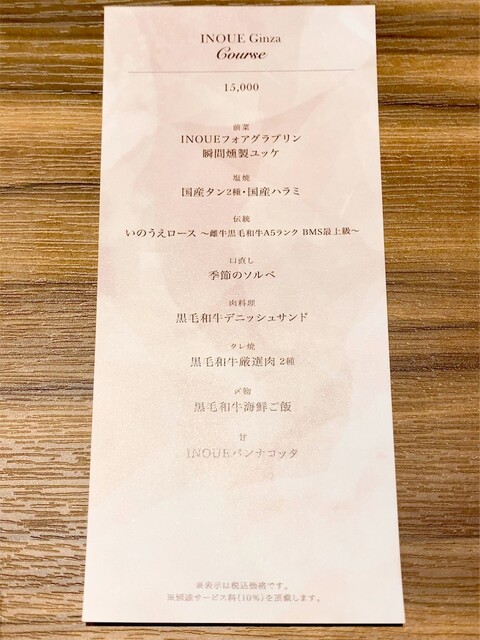 INOUE Ginza
Course
15,000
前菜
INOUEフォアグラプリン
瞬間燻製ユッケ
塩焼
国産タン2種・国産ハラミ
伝統
いのうえロース 〜雌牛黒毛和牛A5ランク BMS最上級〜
口直し
季節のソルベ
肉料理
黒毛和牛デニッシュサンド
タレ焼
黒毛和牛厳選肉 2種
〆物
黒毛和牛海鮮ご飯
甘
INOUEパンナコッタ
※表示は税込価格です。
※別途サービス料(10%)を頂戴します。